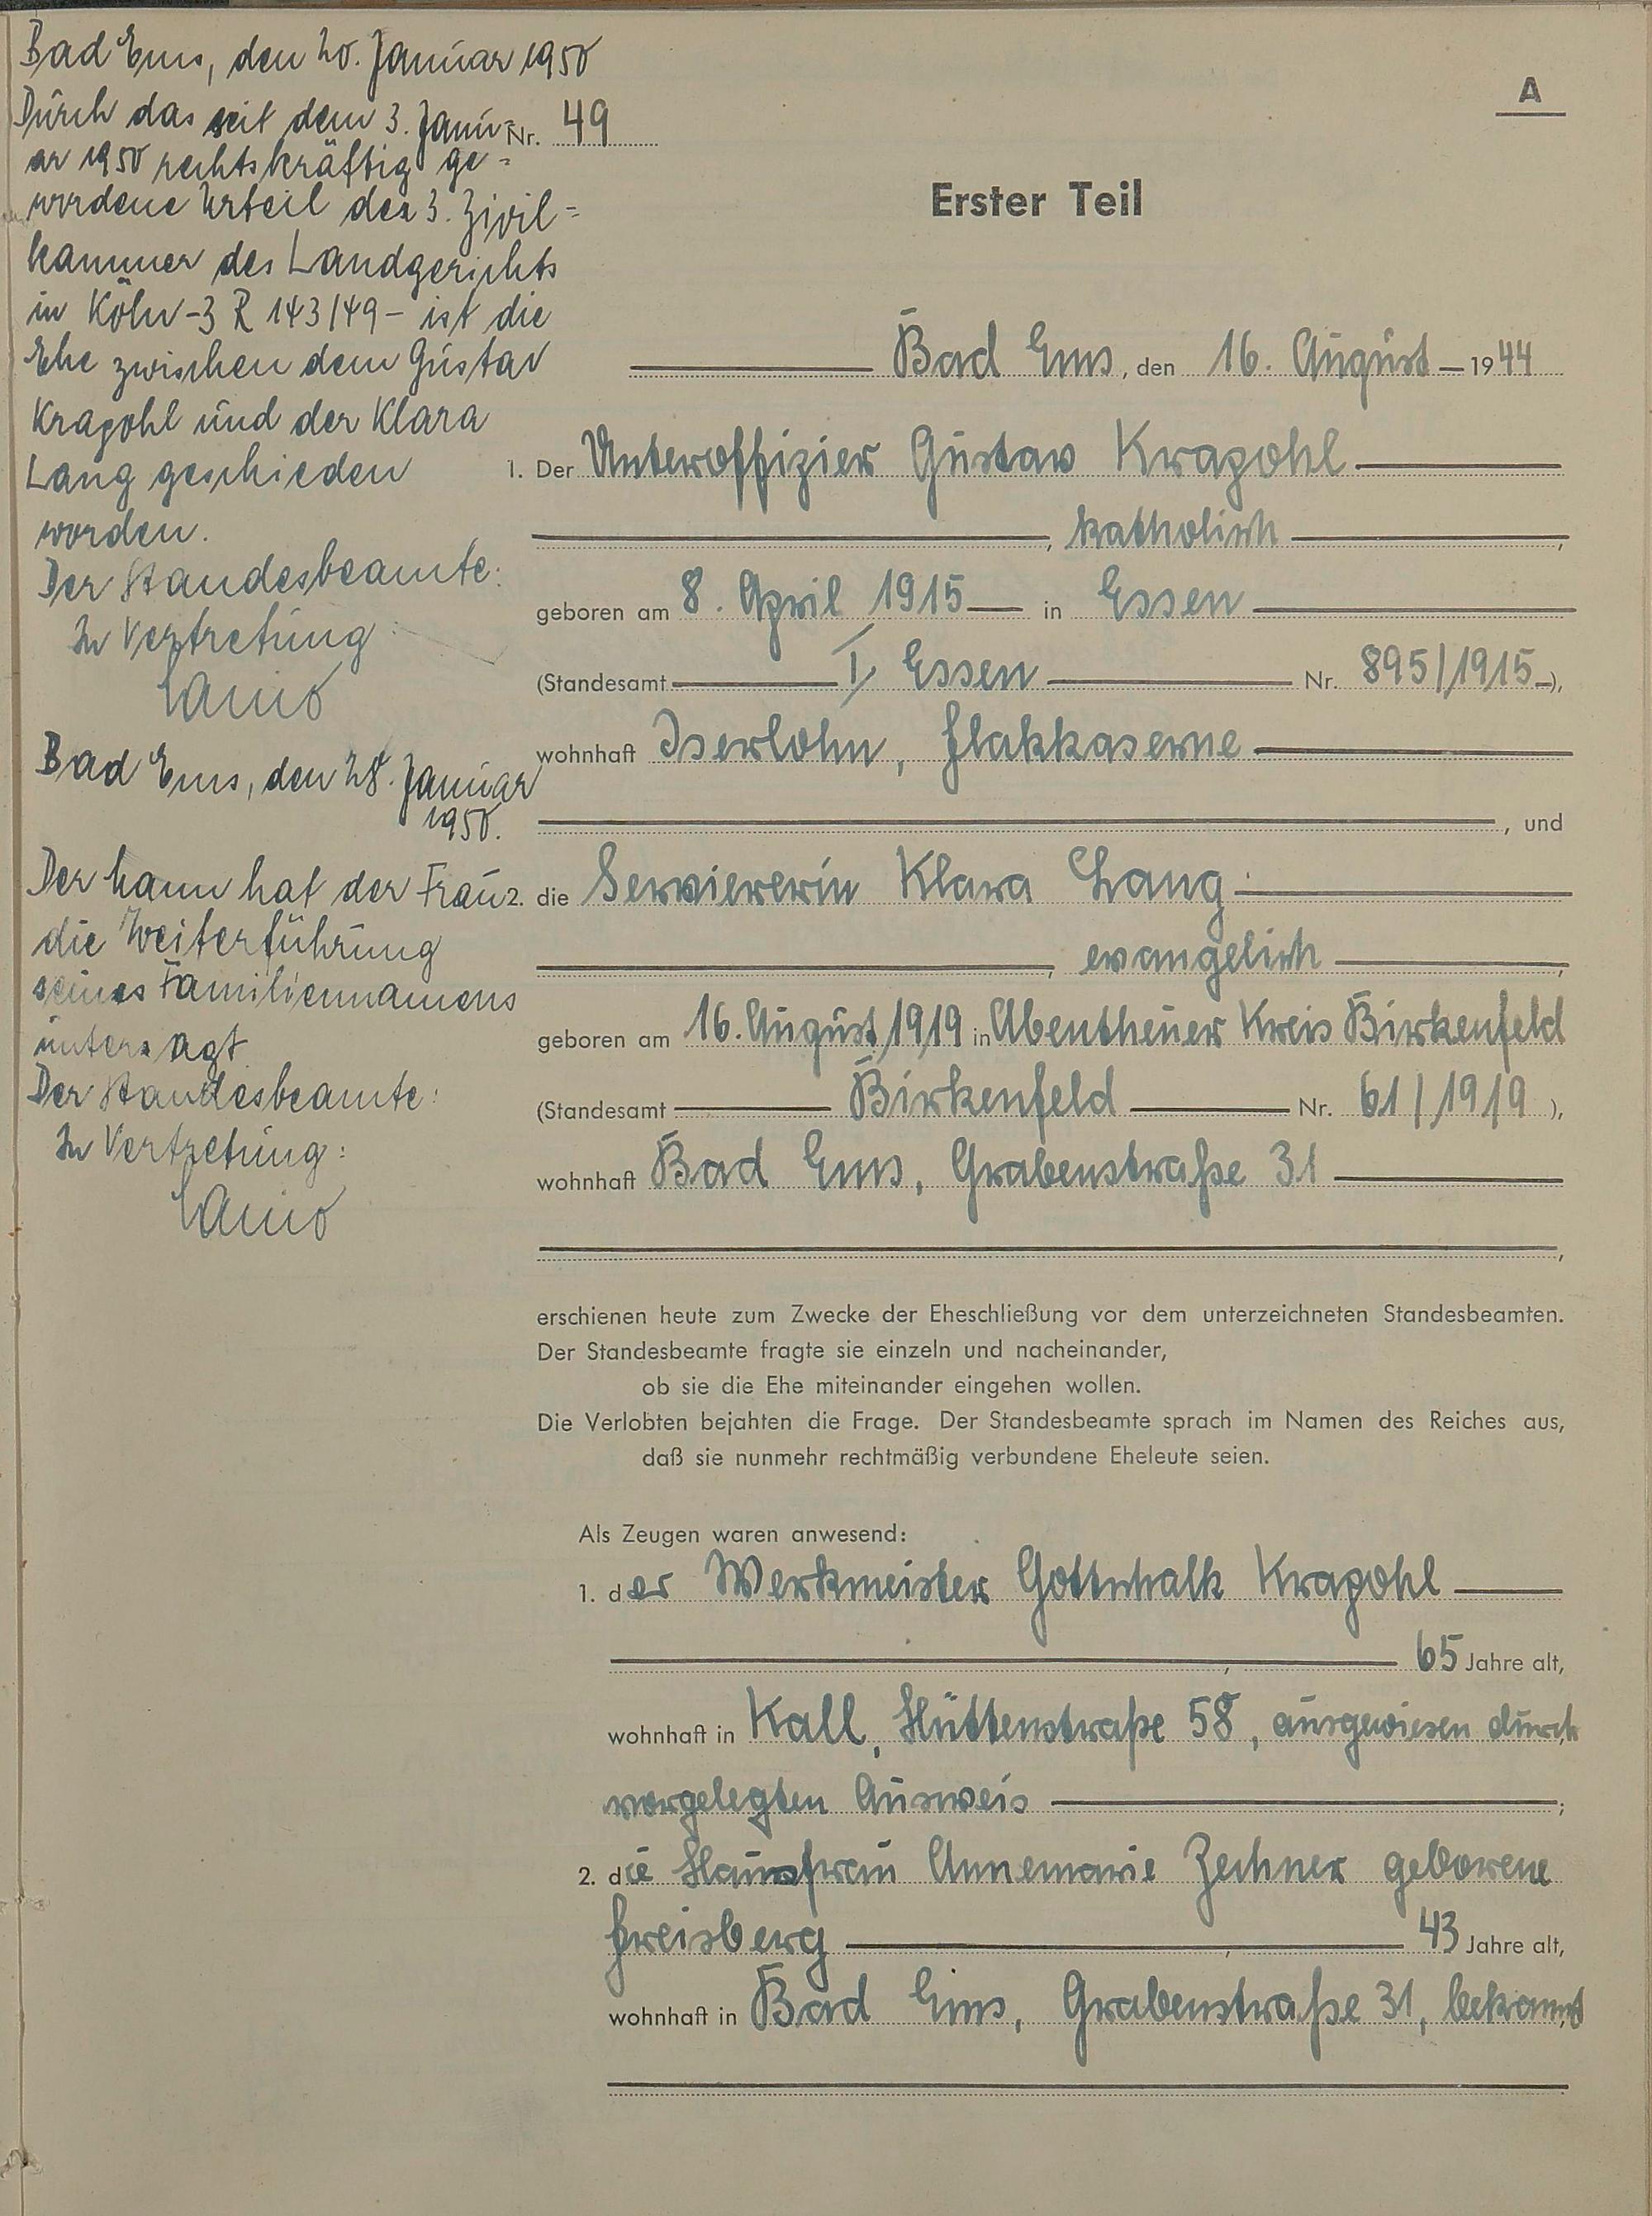 Bad Ems, den 20. Januar 1950
Durch das seit dem 3. Janu=
ar 1950 rechtskräftig ge=
wordene Urteil der 3. Zivil=
kammer des Landgerichts
in Köln -3 R 143/49- ist die
Ehe zwischen dem Gustav
Krapohl und der Klara
Lang geschieden
worden.
Der Standesbeamte:
In Vertretung:
Bad Ems, den 28. Januar
1950.
Der Mann hat der Frau
die Weiterführung
seines Familiennamens
untersagt
Der Standesbeamte:
In Vertretung:
A
Nr. 49
Erster Teil
Bad Ems, den 16. August 1944
1. Der Unteroffizier Gustav Krapohl
, katholisch,
geboren am 8. April 1915 in Essen
(Standesamt I, Essen Nr. 895/1915),
wohnhaft Iserlohn, Flakkaserne
, und
2. die Serviererin Klara Lang
, evangelisch,
geboren am 16. August 1919 in Abentheuer Kreis Birkenfeld
(Standesamt Birkenfeld Nr. 61/1919),
wohnhaft Bad Ems, Grabenstraße 31
,
erschienen heute zum Zwecke der Eheschließung vor dem unterzeichneten Standesbeamten.
Der Standesbeamte fragte sie einzeln und nacheinander,
ob sie die Ehe miteinander eingehen wollen.
Die Verlobten bejahten die Frage. Der Standesbeamte sprach im Namen des Reiches aus,
daß sie nunmehr rechtmäßig verbundene Eheleute seien.
Als Zeugen waren anwesend:
1. der Werkmeister Gottschalk Krapohl
, 65 Jahre alt,
wohnhaft in Kall, Hüttenstraße 58, ausgewiesen durch
vorgelegten Ausweis;
2. die Hausfrau Annemarie Zechner geborene
Freisberg, 43 Jahre alt,
wohnhaft in Bad Ems, Grabenstraße 31, bekannt
.